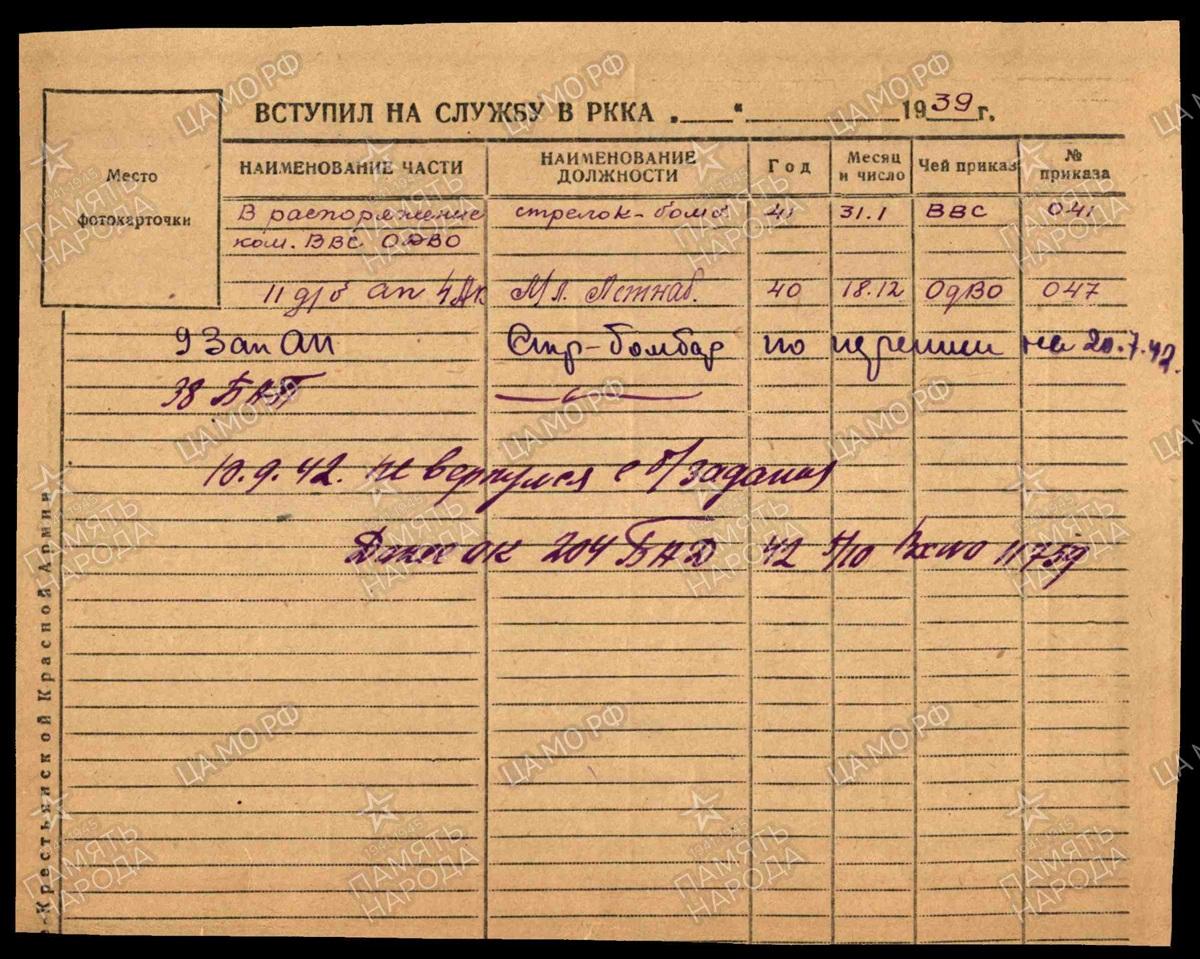 ВСТУПИЛ НА СЛУЖБУ В РККА „ “ 1939 г.
Место фотокарточки
НАИМЕНОВАНИЕ ЧАСТИ НАИМЕНОВАНИЕ ДОЛЖНОСТИ Год Месяц и число Чей приказ № приказа
В распоряжение стрелок-бомб 41 31.1 ВВС 041
ком. ВВС ОДВО
11 ап Мл. Летнаб. 40 18.12 ОдВО 047
9 Зап АП Стр-бомбар по на 20.7.42.
38 БАП
10.9.42. не вернулся с б/задания
204 БАД 42 5/10 11759
Крестьянской Красной Армии
ЦАМО РФ
1941-1945
ПАМЯТЬ
НАРОДА